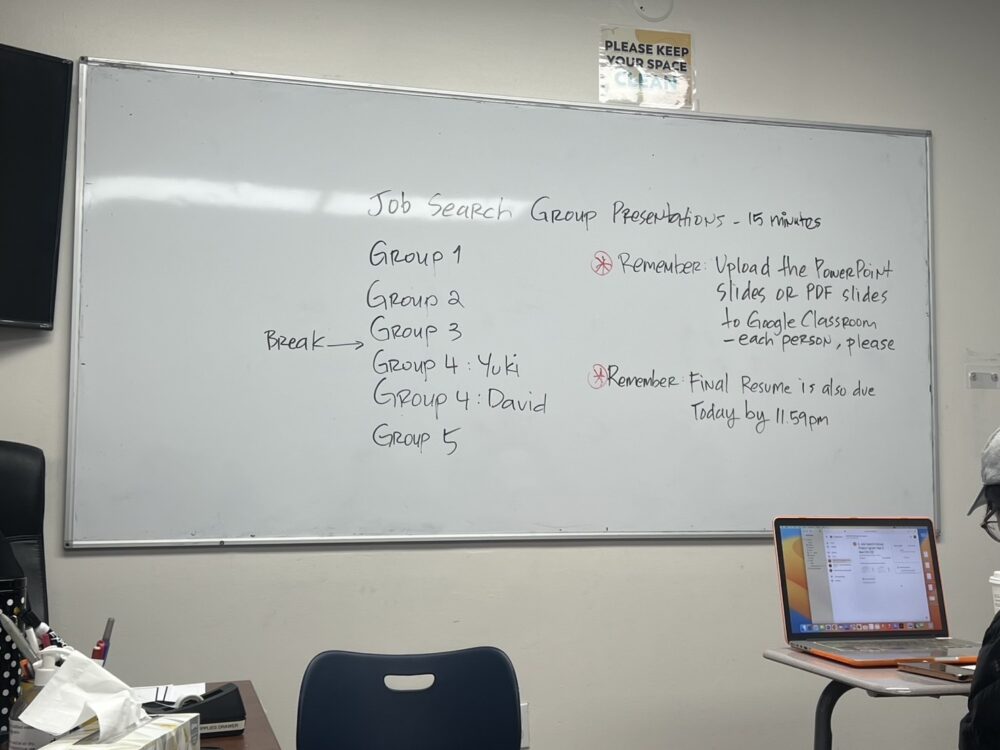 PLEASE KEEP
YOUR SPACE
CLEAN
Job Search Group Presentations - 15 minutes
Group 1
Group 2
Break → Group 3
Group 4 : Yuki
Group 4 : David
Group 5
Remember: Upload the PowerPoint
Slides OR PDF slides
to Google Classroom
- each person, please
Remember: Final Resume is also due
Today by 11.59pm
SUPPLIES DRAWER